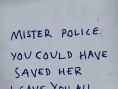 MISTER POLICE.
YOU COULD HAVE
SAVED HER
I GAVE YOU ALL